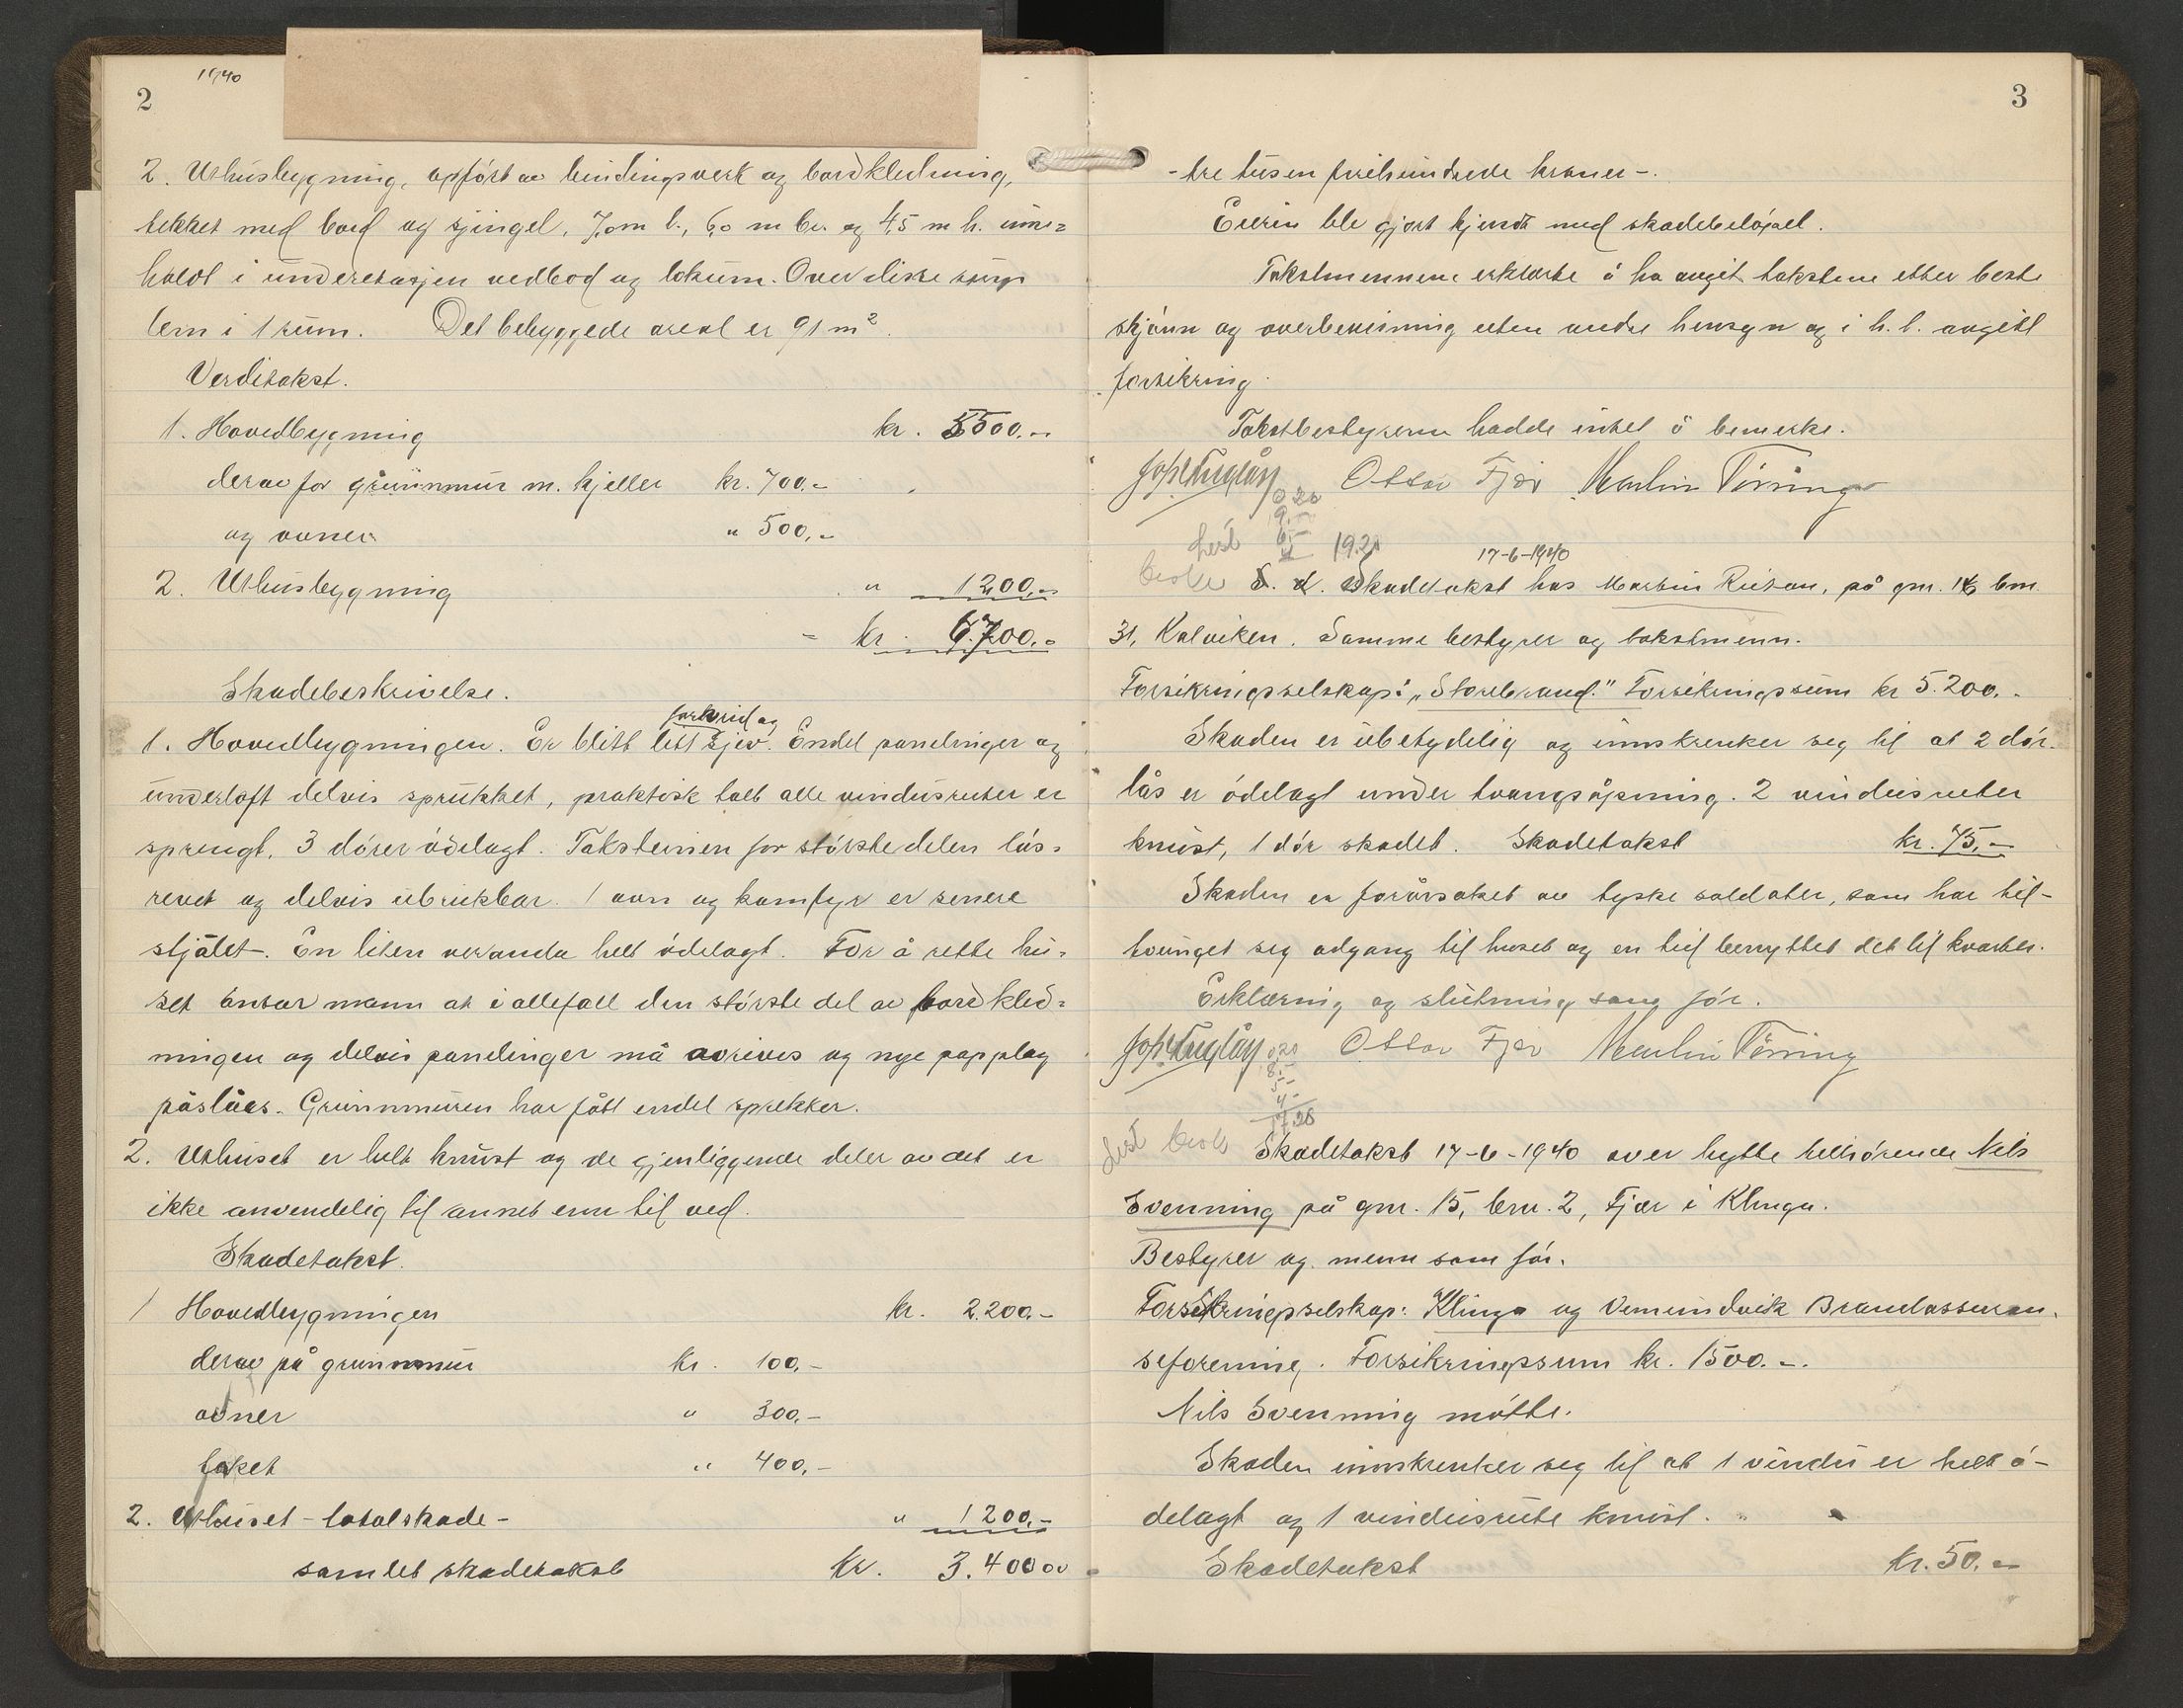 1940
2
2. Uthusbygning, opført av bindingsverk og bordkledning,
tekket med bord og sjingel. 7,0 m l., 6,0 m br. og 4,5 m h. inne=
holdt i underetasjen vedbod og lokum. Over disse
lem i 1 rum. Det bebyggede areal er 91 m².
Verditakst.
1. Hovedbygning kr. 5500.-
derav for grunnmur m. kjeller kr. 700.-
og ovner " 500.-
2. Uthusbygning " 1200.-
= kr. 6.700.-
Skadebeskrivelse.
forkrid og
1. Hovedbygningen. Er blitt litt sjev. Endel panelinger og
underloft delvis sprukket, praktisk talt alle vindusruter er
sprengt. 3 dører ødelagt. Taksteinen for største delen løs=
revet og delvis ubrukbar. 1 ovn og komfyr er senere
stjålet. En liten veranda helt ødelagt. For å rette hu=
set ansar mann at i allefall den største del av bordkled=
ningen og delvis panelinger må avrives og nye papplag
påslåes. Grunnmuren har fått endel sprekker.
2. Uthuset er helt knust og de gjenliggende deler av det er
ikke anvendelig til annet enn til ved.
Skadetakst.
1 Hovedbygningen kr. 2.200.-
derav på grunnmur kr. 100,-
ovner " 300,-
taket " 400,-
2. Uthuset - totalskade - " 1200,-
samlet skadetakst Kr. 3.400 00
3
- tre tusen firehundrede kroner -.
Eieren ble gjort kjendt med skadebeløpet.
Takstmennene erklærte å ha avgit takstene etter beste
skjønn og overbevisning uten andre hensyn og i h. t. avgitt
forsikring.
Takstbestyreren hadde intet å bemerke.
Ottar Fjær Martin Tøring
0.20
9.-
6.-
4
19.20
17-6-1940
Skadetakst hos Martin Rietan, på gnr. 16 bnr.
31, Kalviken. Samme bestyrer og takstmenn.
Forsikringsselskap: "Storebrand." Forsikringssum kr 5.200.-
Skaden er ubetydelig og innskrenker seg til at 2 dør-
lås er ødelagt under tvangsåpning. 2 vindusruter
knust, 1 dør skadet. Skadetakst kr. 75,-
Skaden er forårsaket av tyske soldater, som har til-
tvunget seg adgang til huset og en tid benyttet det til kvarter.
Erklæring og slutning som før.
Ottar Fjær Martin Tøring
0.20
8.-
5-
4-
17.20
Skadetakst 17-6-1940 over hytte tilhørende Nils
Svenning på gnr. 15, bnr. 2, Fjær i Klinga.
Bestyrer og menn som før.
Forsikringsselskap: Klinga og Vemundvik Brandassuran-
seforening. Forsikringssum kr. 1500.-.
Nils Svenning møtte.
Skaden innskrenker seg til at 1 vindu er helt ø-
delagt og 1 vindusrute knust.
Skadetakst Kr. 50.-